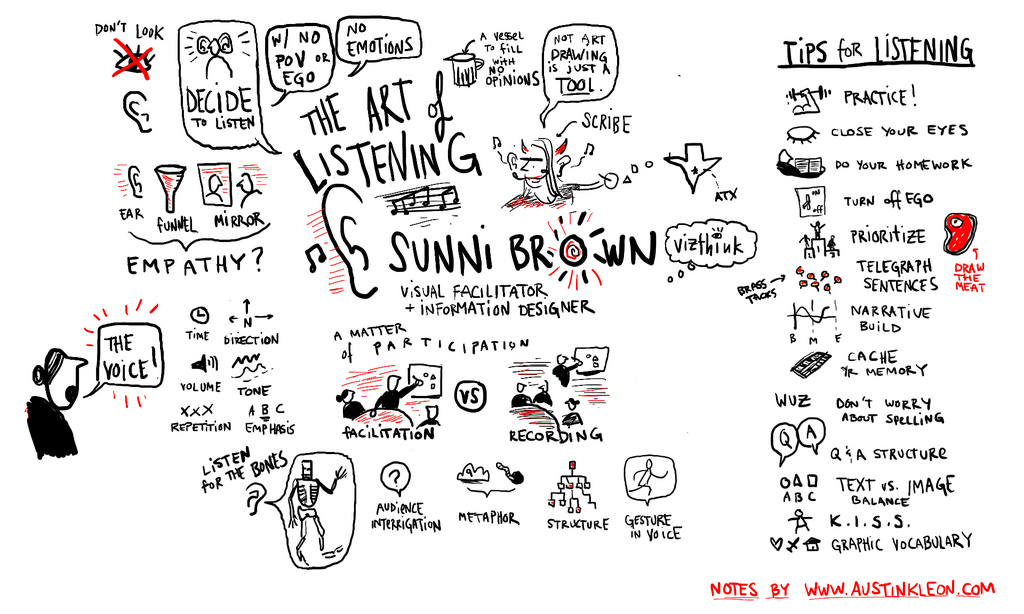 DON'T LOOK
DECIDE
TO LISTEN
W/ NO
POV OR
EGO
NO
EMOTIONS
A VESSEL
TO FILL
WITH
NO
OPINIONS
NOT ART
DRAWING
IS JUST A
TOOL.
THE ART of
LISTENING
SCRIBE
ATX
EAR
FUNNEL
MIRROR
EMPATHY?
SUNNI BROWN
VISUAL FACILITATOR
+ INFORMATION DESIGNER
vizthink
THE
VOICE!
TIME
N
DIRECTION
VOLUME
TONE
XXX
REPETITION
A B C
EMPHASIS
A MATTER
of PARTICIPATION
FACILITATION
VS
RECORDING
LISTEN
FOR THE BONES
?
AUDIENCE
INTERRIGATION
METAPHOR
STRUCTURE
GESTURE
IN VOICE
TIPS for LISTENING
PRACTICE!
CLOSE YOUR EYES
DO YOUR HOMEWORK
ON
OFF
TURN off EGO
PRIORITIZE
DRAW
THE
MEAT
BRASS
TACKS
TELEGRAPH
SENTENCES
NARRATIVE
BUILD
B M E
CACHE
YR MEMORY
WUZ
DON'T WORRY
ABOUT SPELLING
Q A
Q & A STRUCTURE
A B C
TEXT vs. IMAGE
BALANCE
K.I.S.S.
GRAPHIC VOCABULARY
NOTES BY WWW.AUSTINKLEON.COM